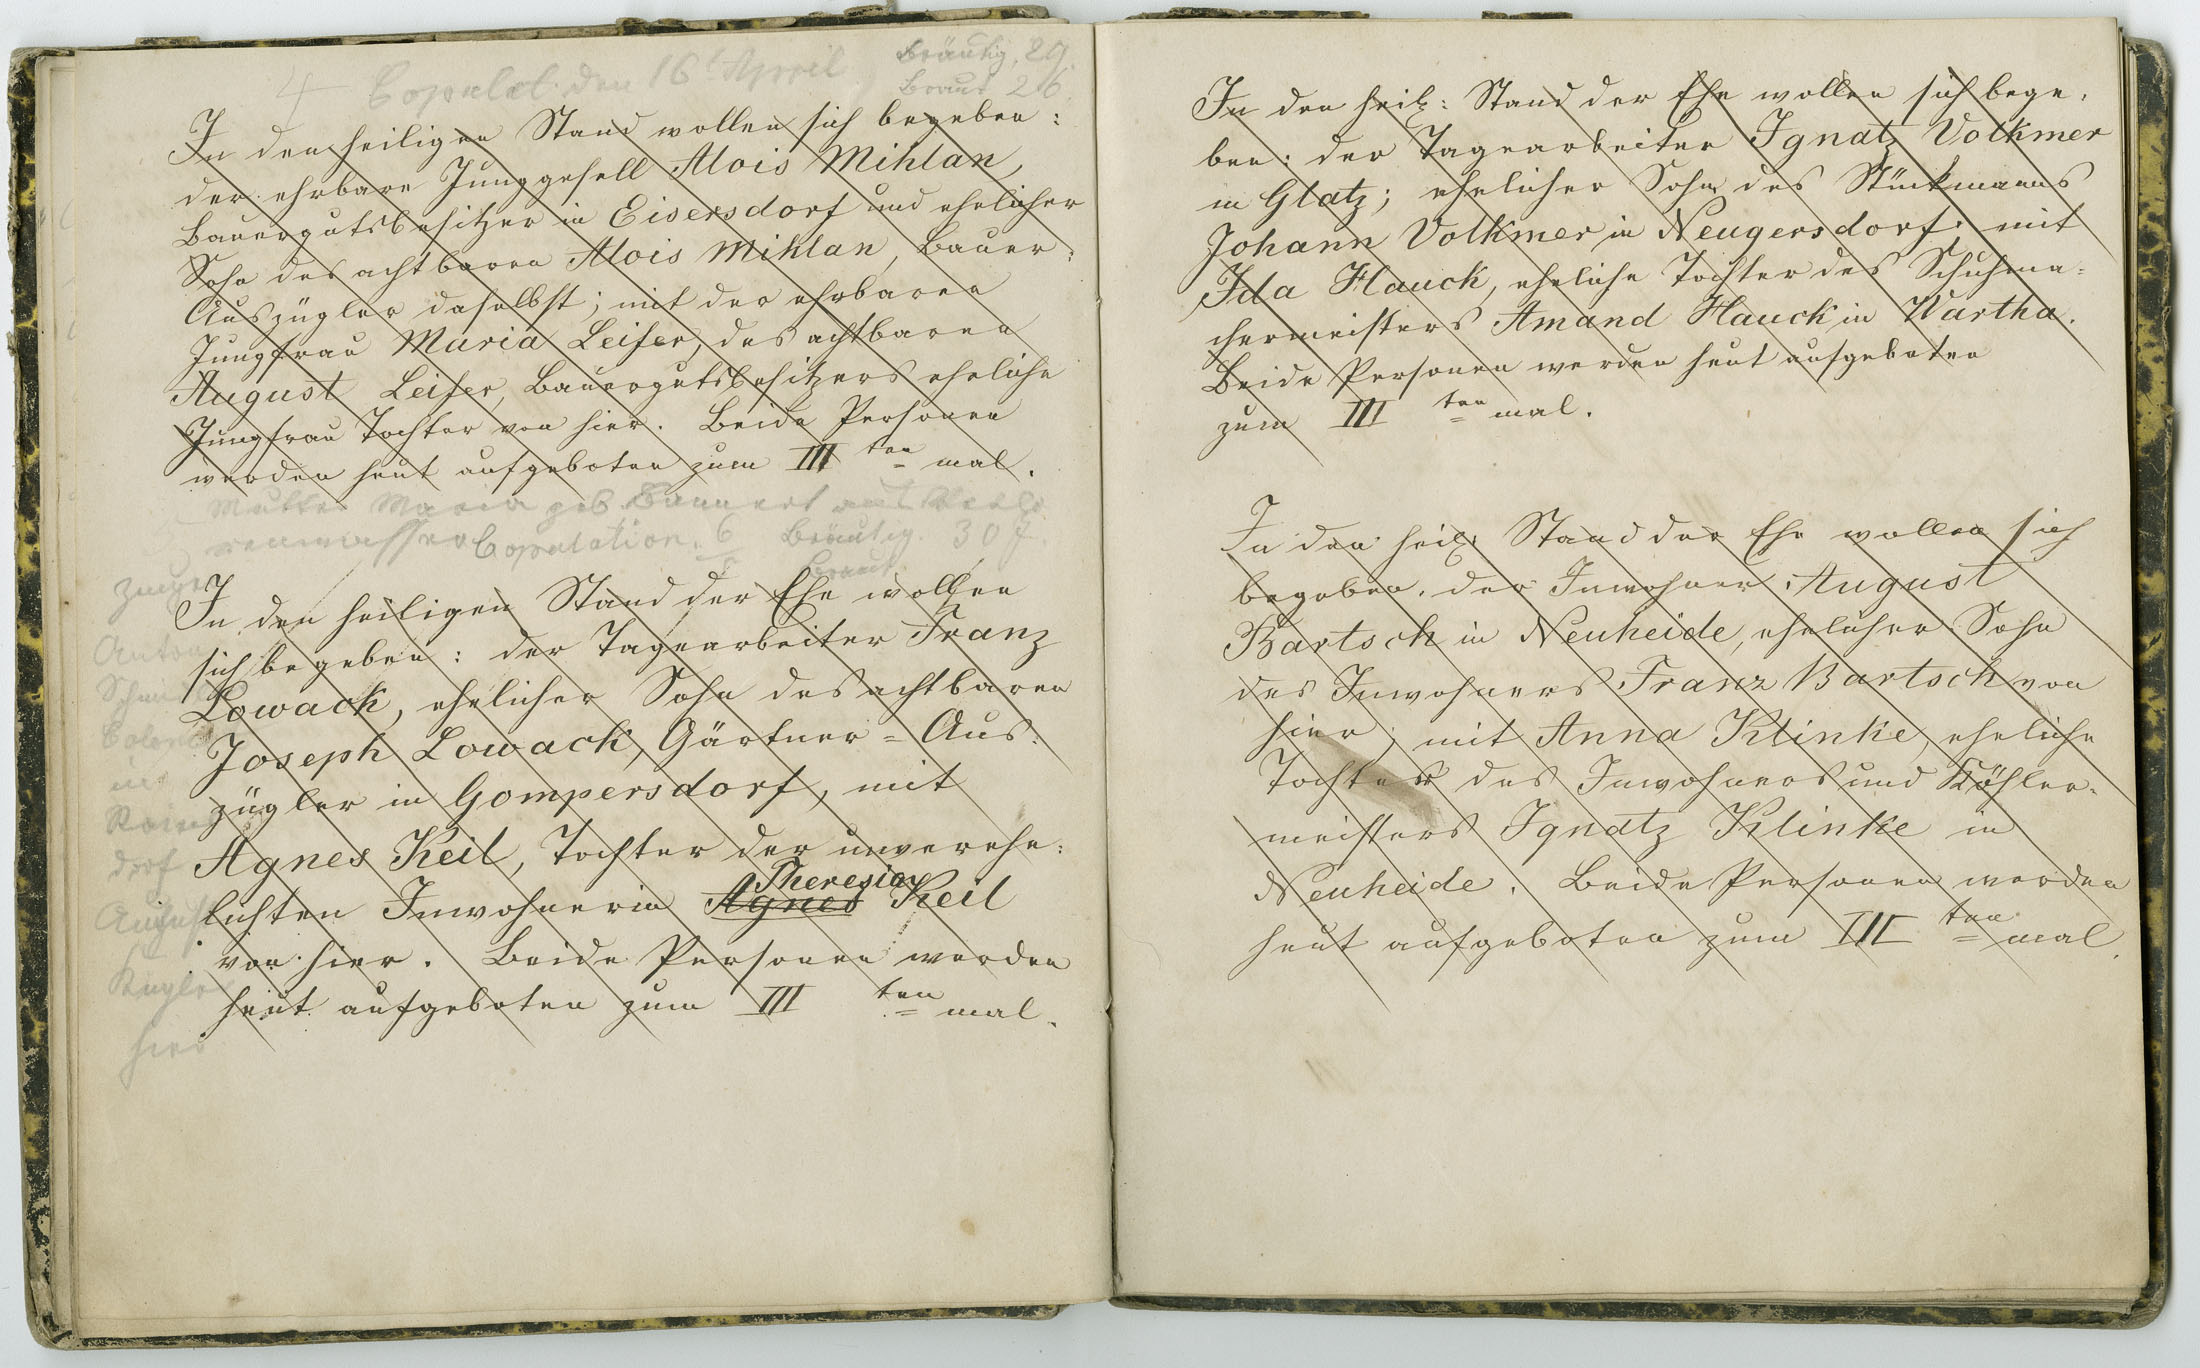 4 Copulat. den 16t April Bräutig. 29.
Braut 26.
In den heiligen Stand wollen sich begeben:
der ehrbare Junggesell Alois Mihlan,
Bauergutsbesitzer in Eisersdorf und ehelicher
Sohn des achtbaren Alois Mihlan, Bauer-
Auszügler daselbst; mit der ehrbaren
Jungfrau Maria Leifer, des achtbaren
August Leifer, Bauergutsbesitzers eheliche
Jungfrau Tochter von hier. Beide Personen
werden heut aufgeboten zum III ten mal.
Mutter Maria geb.
Copulation. 6 Bräutig. 30 J.
Braut
In den heiligen Stand der Ehe wollen
sich begeben: der Tagearbeiter Franz
Lowack, ehelicher Sohn des achtbaren
Joseph Lowack, Gärtner-Aus-
zügler in Gompersdorf, mit
Agnes Keil, Tochter der unverehe-
Theresia
lichten Inwohnerin Agnes Keil
von hier. Beide Personen werden
heut aufgeboten zum III ten mal.
Anton
in
dorf
August
hier
In den heil: Stand der Ehe wollen sich bege-
ben: der Tagearbeiter Ignatz Volkmer
in Glatz; ehelicher Sohn des Stückmanns
Johann Volkmer in Neugersdorf mit
Ida Hauck, eheliche Tochter des Schuhma-
chermeisters Amand Hauck in Wartha.
Beide Personen werden heut aufgeboten
zum III ten mal.
In den heil: Stand der Ehe wollen sich
begeben. der Inwohner August
Bartsch in Neuheide, ehelicher Sohn
des Inwohners Franz Bartsch von
hier; mit Anna Klinke, eheliche
Tochter des Inwohners und Köhler-
meisters Ignatz Klinke in
Neuheide. Beide Personen werden
heut aufgeboten zum III ten mal.